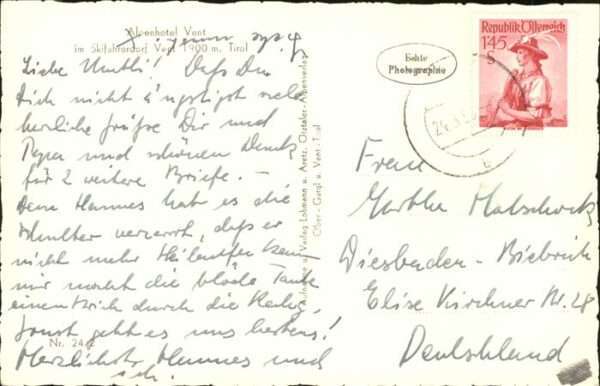 Alpenhotel Vent
im Skifahrerdorf Vent 1900 m, Tirol
Liebe Mutti! Daß Du
Dich nicht ängstigst viele
herzliche Grüße Dir und
Papa und schönen Dank
für 2 weitere Briefe. –
Dem Hannes hat es die
Schulter verzerrt, daß er
nicht mehr Skilaufen kann
nur macht die blöde Tante
einen Strich durch die
sonst geht es uns bestens!
Herzlichst Hannes und
Nr. 24
Verlag Lohmann u. Aretz, Ötztaler-Alpenverlag
Ober-Gurgl u. Vent-Tirol
Echte
Photographie
Republik Österreich
1'45
Frau
Martha
Wiesbaden-Biebrich
Elise Kirchner Nr. 28
Deutschland